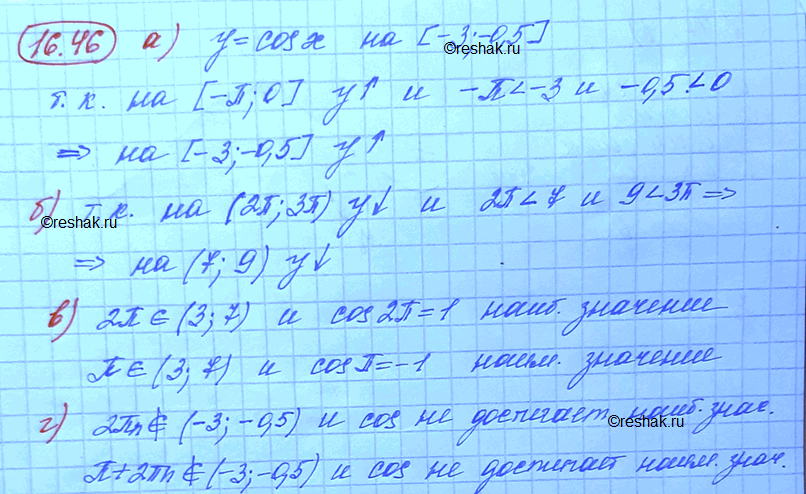 16.46 а) y = cos x на [-3; -0,5]
©reshak.ru
т.к. на [-π; 0] y↑ и -π < -3 и -0,5 < 0
⇒ на [-3; -0,5] y↑
б) т.к. на (2π; 3π) y↓ и 2π < 7 и 9 < 3π ⇒
©reshak.ru
⇒ на (7; 9) y↓
в) 2π ∈ (3; 7) и cos 2π = 1 наиб. значение
π ∈ (3; 7) и cos π = -1 наим. значение
г) 2πn ∉ (-3; -0,5) и cos не достигает наиб. знач.
©reshak.ru
π + 2πn ∉ (-3; -0,5) и cos не достигает наим. знач.